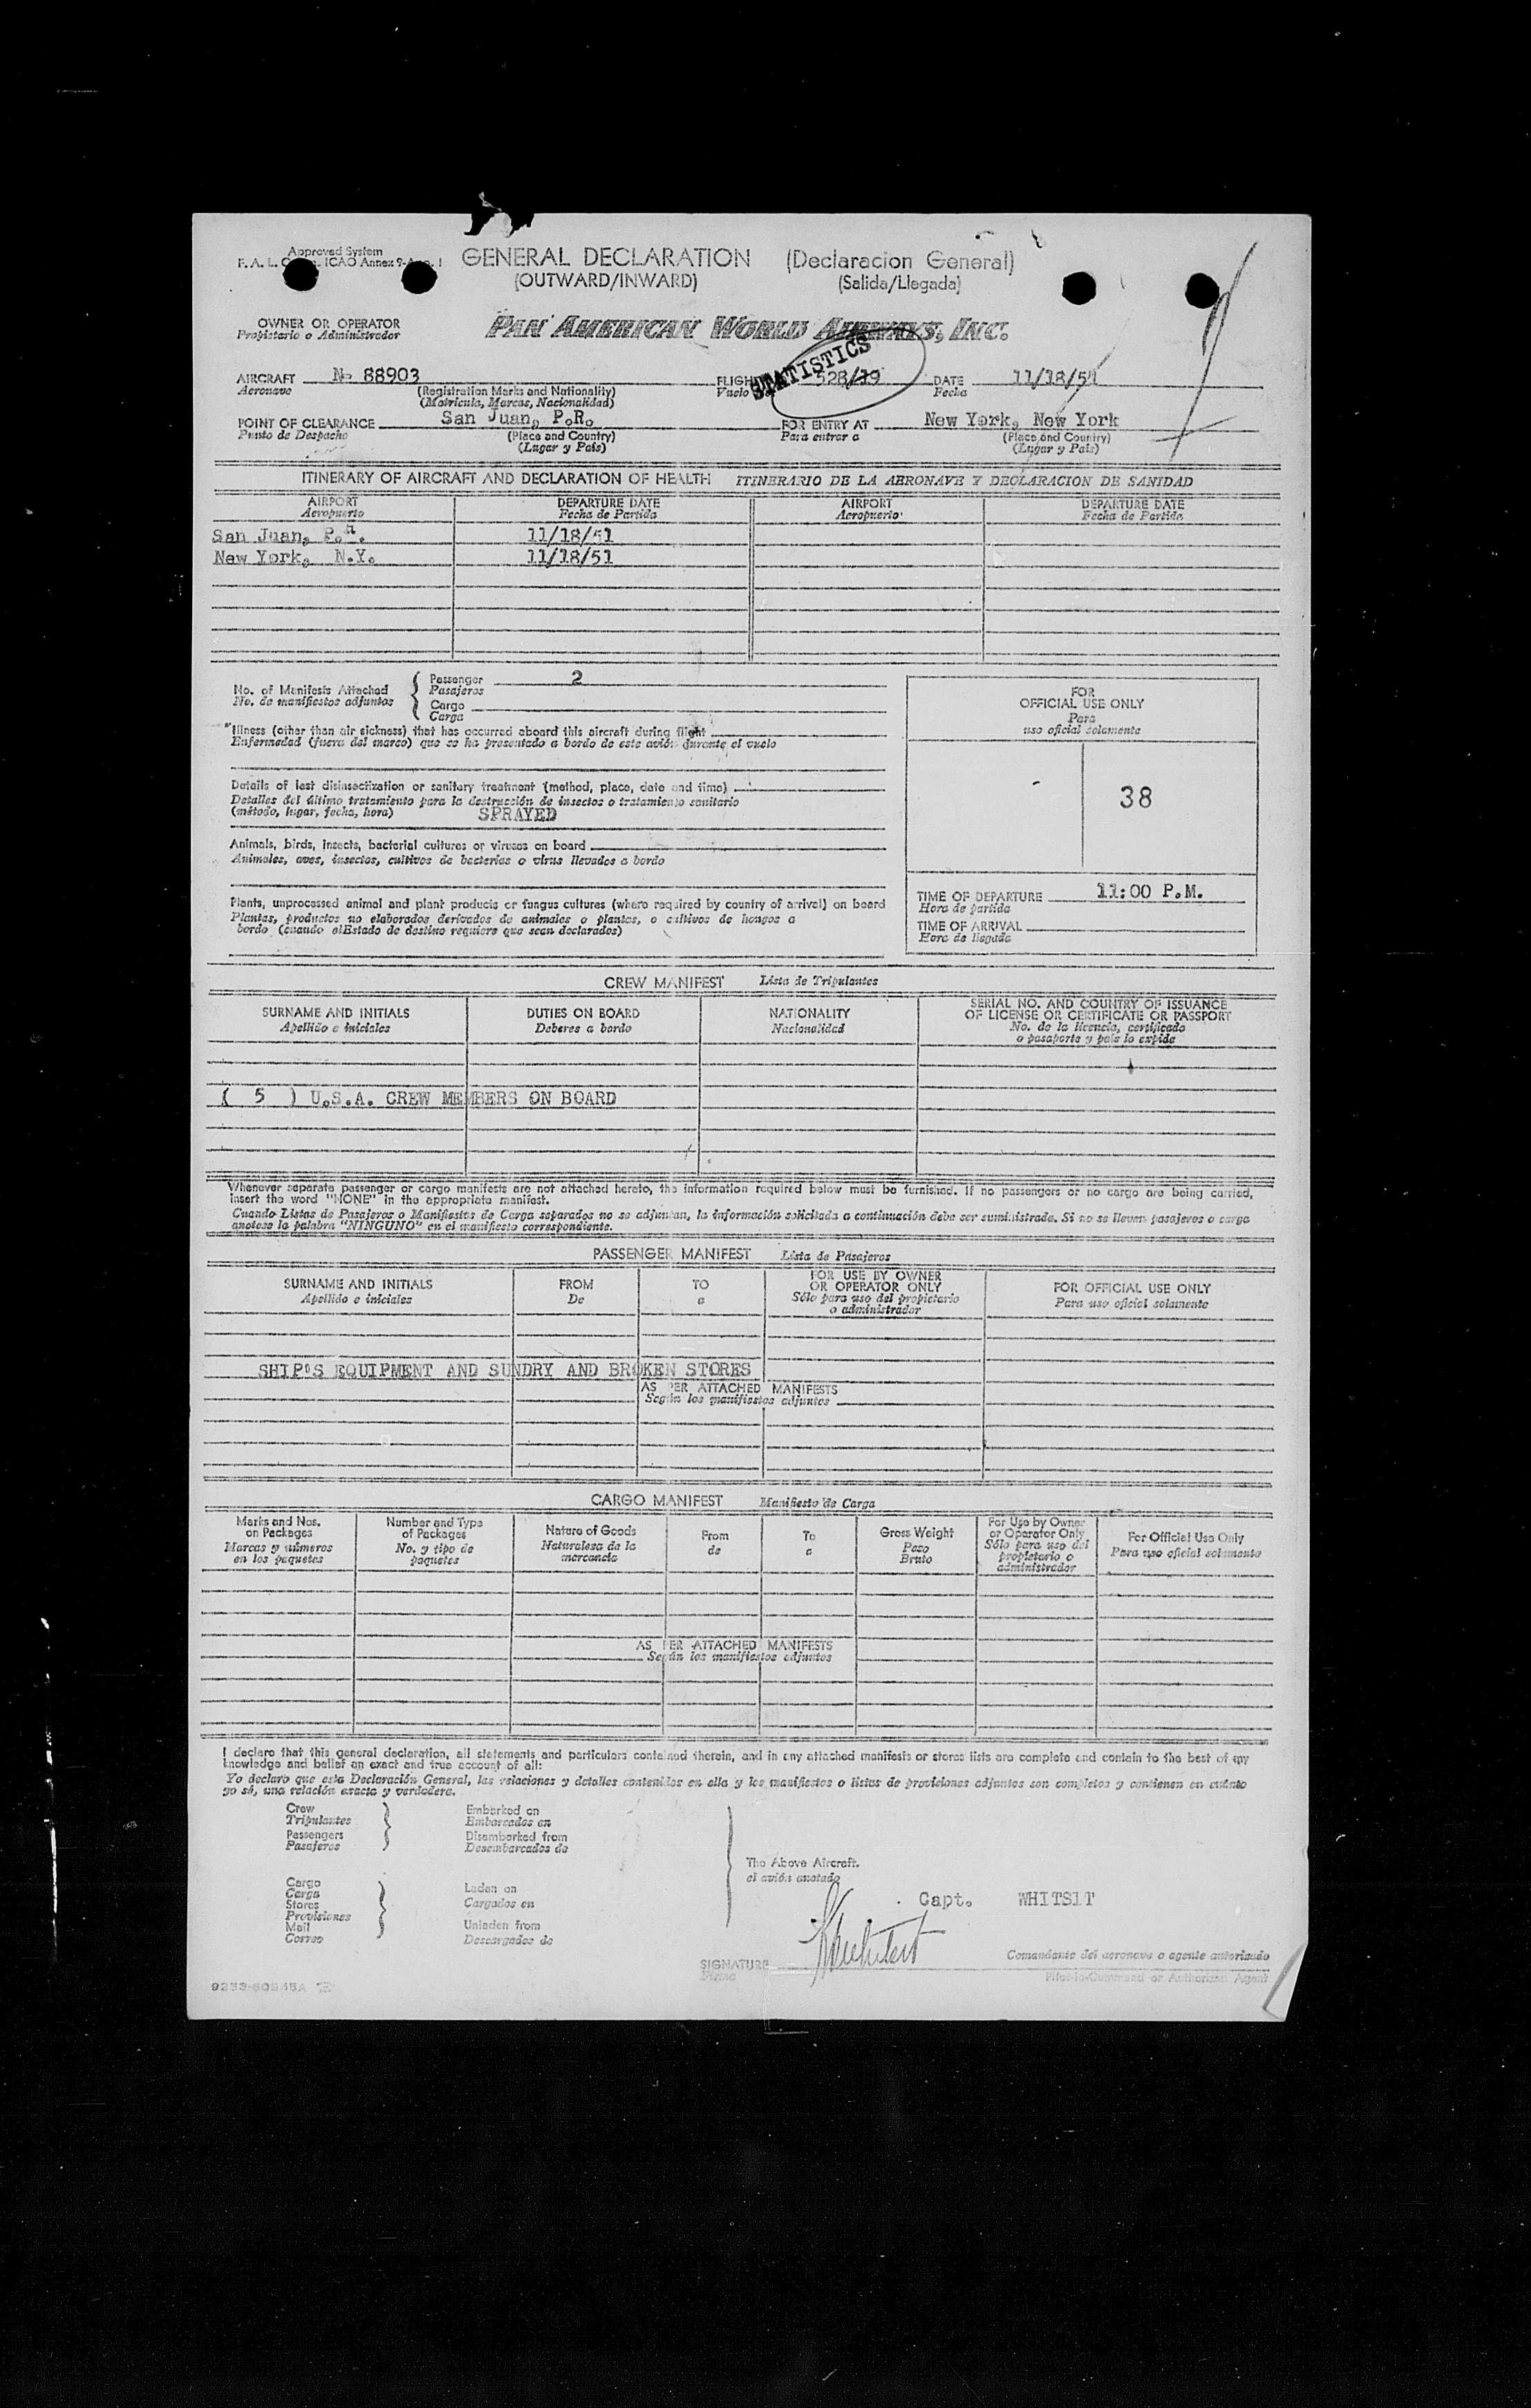 Approved System
GENERAL DECLARATION (Declaracion General)
F. A. L. ICAO Annex 9-
(OUTWARD/INWARD) (Salida/Llegada)
OWNER OR OPERATOR PAN AMERICAN WORLD AIRWAYS, INC.
Propietario o Administrador
STATISTICS
AIRCRAFT No 88903 FLIGHT 528/19 DATE 11/18/51
Aeronave (Registration Marks and Nationality) Vuelo Fecha
(Matricula, Marcas, Nacionalidad)
POINT OF CLEARANCE San Juan, P.R. FOR ENTRY AT New York, New York
Punto de Despacho (Place and Country) Para entrar a (Place and Country)
(Lugar y Pais) (Lugar y Pais)
ITINERARY OF AIRCRAFT AND DECLARATION OF HEALTH ITINERARIO DE LA AERONAVE Y DECLARACION DE SANIDAD
AIRPORT DEPARTURE DATE AIRPORT DEPARTURE DATE
Aeropuerto Fecha de Partida Aeropuerto Fecha de Partida
San Juan, P.R. 11/18/51
New York, N.Y. 11/18/51
No. of Manifests Attached Passenger 2
No. de manifiestos adjuntos Pasajeros
Cargo
Carga
Illness (other than air sickness) that has occurred aboard this aircraft during flight
Enfermedad (fuera del mareo) que se ha presentado a bordo de este avión durante el vuelo
Details of last disinsectization or sanitary treatment (method, place, date and time)
Detalles del último tratamiento para la destrucción de insectos o tratamiento sanitario
(método, lugar, fecha, hora) SPRAYED
Animals, birds, insects, bacterial cultures or viruses on board
Animales, aves, insectos, cultivos de bacterias o virus llevados a bordo
Plants, unprocessed animal and plant products or fungus cultures (where required by country of arrival) on board
Plantas, productos no elaborados derivados de animales o plantas, o cultivos de hongos a
bordo (cuando elEstado de destino requiere que sean declarados)
FOR
OFFICIAL USE ONLY
Para
uso oficial solamente
38
TIME OF DEPARTURE 11:00 P.M.
Hora de partida
TIME OF ARRIVAL
Hora de llegada
CREW MANIFEST Lista de Tripulantes
SURNAME AND INITIALS DUTIES ON BOARD NATIONALITY SERIAL NO. AND COUNTRY OF ISSUANCE
OF LICENSE OR CERTIFICATE OR PASSPORT
Apellido e iniciales Deberes a bordo Nacionalidad No. de la licencia, certificado
o pasaporte y pais lo expide
( 5 ) U.S.A. CREW MEMBERS ON BOARD
Whenever separate passenger or cargo manifests are not attached hereto, the information required below must be furnished. If no passengers or no cargo are being carried,
insert the word "NONE" in the appropriate manifest.
Cuando Listas de Pasajeros o Manifiestos de Carga separados no se adjuntan, la información solicitada a continuación debe ser suministrada. Si no se llevan pasajeros o carga
anotese la palabra "NINGUNO" en el manifiesto correspondiente.
PASSENGER MANIFEST Lista de Pasajeros
SURNAME AND INITIALS FROM TO FOR USE BY OWNER FOR OFFICIAL USE ONLY
OR OPERATOR ONLY
Apellido e iniciales De a Sólo para uso del propietario Para uso oficial solamente
o administrador
SHIP'S EQUIPMENT AND SUNDRY AND BROKEN STORES
AS PER ATTACHED MANIFESTS
Según los manifiestos adjuntos
CARGO MANIFEST Manifiesto de Carga
Marks and Nos. Number and Type Nature of Goods From To Gross Weight For Use by Owner For Official Use Only
on Packages of Packages Naturaleza de la de a Peso or Operator Only Para uso oficial solamente
Marcas y números No. y tipo de mercancia Bruto Sólo para uso del
en los paquetes paquetes propietario o
administrador
AS PER ATTACHED MANIFESTS
Según los manifiestos adjuntos
I declare that this general declaration, all statements and particulars contained therein, and in any attached manifests or stores lists are complete and contain to the best of my
knowledge and belief an exact and true account of all:
Yo declaro que esta Declaración General, las relaciones y detalles contenidos en ella y los manifiestos o listas de provisiones adjuntos son completos y contienen en cuánto
yo sé, una relación exacta y verdadera.
Crew Embarked on
Tripulantes Embarcados en
Passengers Disembarked from
Pasajeros Desembarcados de
The Above Aircraft.
el avión anotado
Cargo Laden on
Carga Cargados en
Stores
Provisiones
Mail Unladen from
Correo Descargados de
Capt. WHITSIT
SIGNATURE Whitsit Comandante del aeronave o agente autorizado
Firma Pilot-in-Command or Authorized Agent